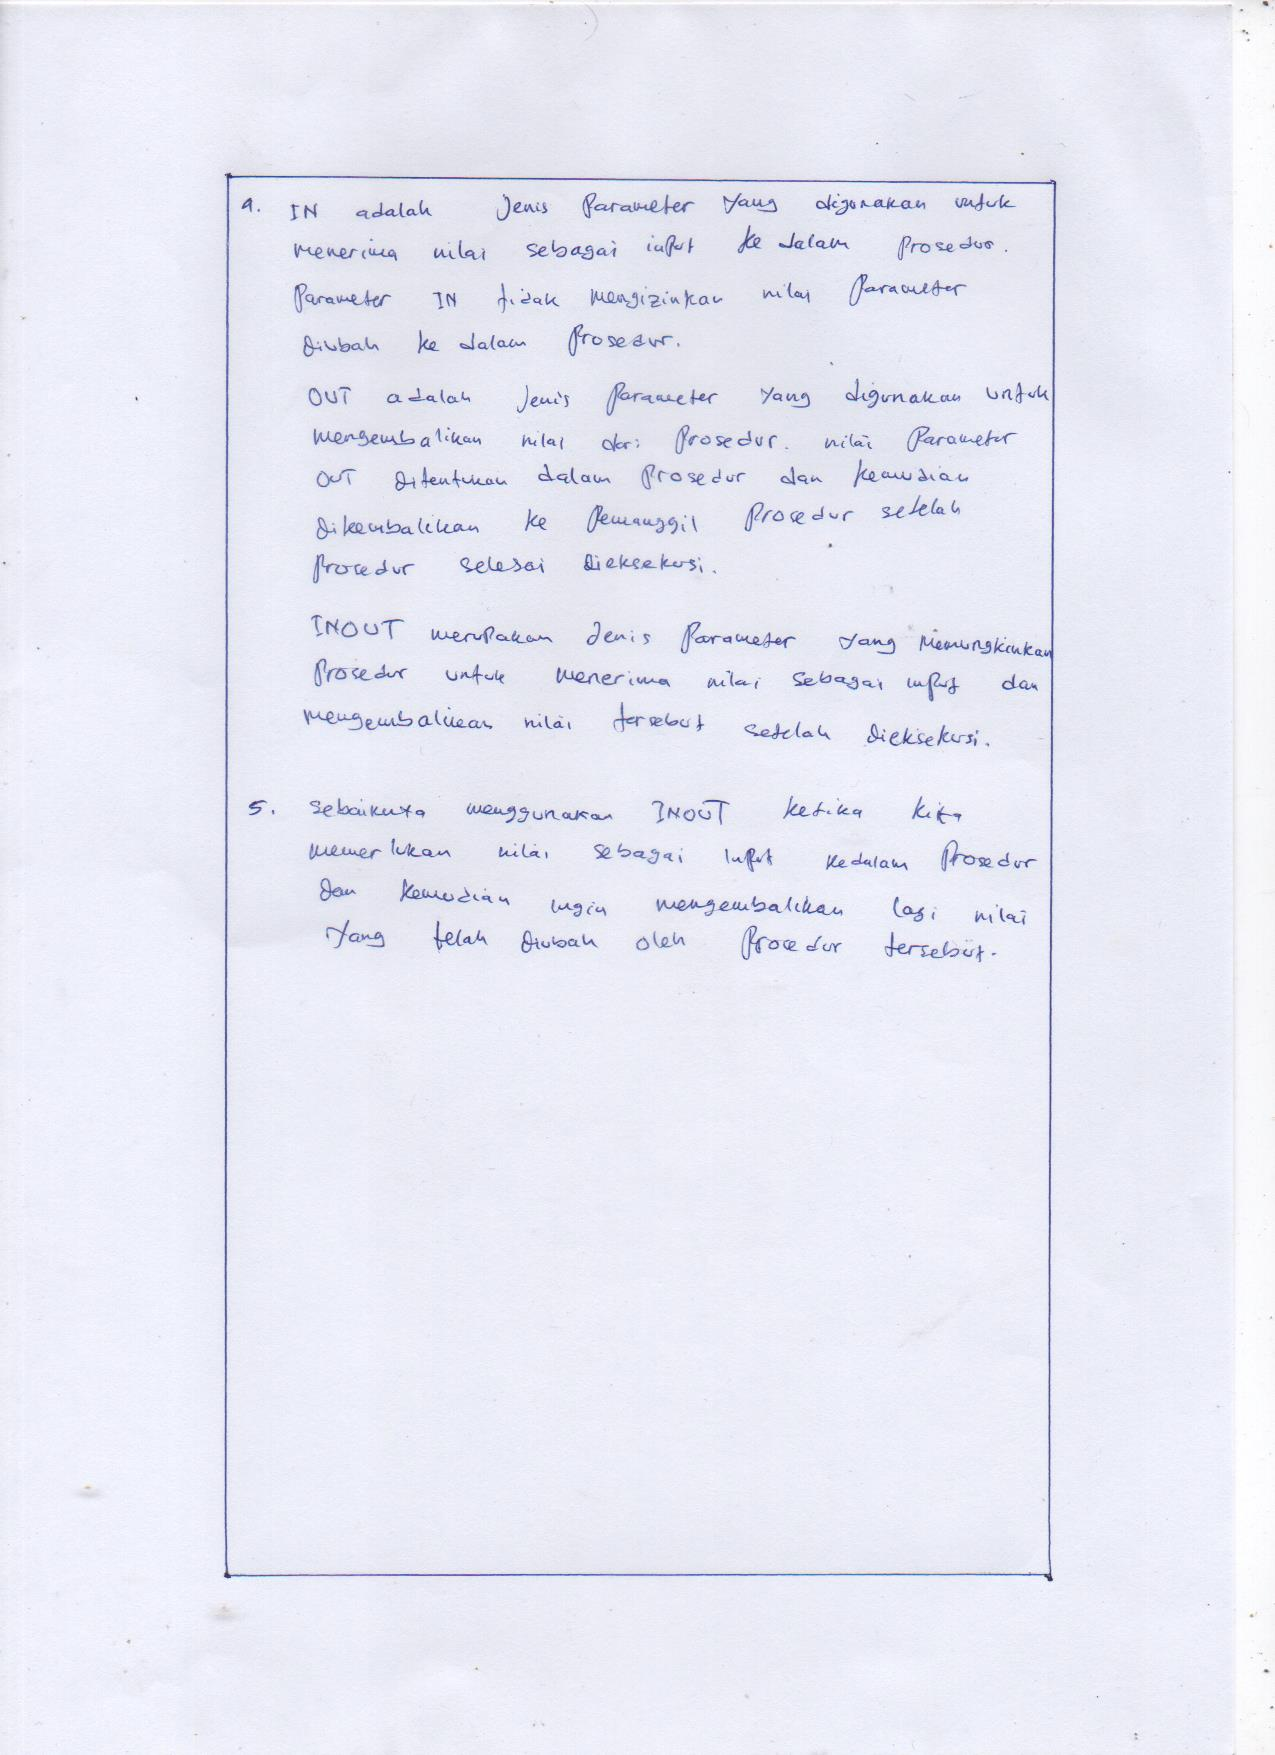 4. IN adalah jenis Parameter yang digunakan untuk
menerima nilai sebagai input ke dalam prosedur.
Parameter IN tidak mengizinkan nilai Parameter
diubah ke dalam Prosedur.
OUT adalah jenis Parameter yang digunakan untuk
mengembalikan nilai dari Prosedur. nilai Parameter
OUT ditentukan dalam Prosedur dan kemudian
dikembalikan ke Pemanggil Prosedur setelah
Prosedur selesai dieksekusi.
INOUT merupakan jenis Parameter yang memungkinkan
Prosedur untuk menerima nilai sebagai input dan
mengembalikan nilai tersebut setelah dieksekusi.
5. sebaiknya menggunakan INOUT ketika kita
memerlukan nilai sebagai input kedalam Prosedur
dan kemudian ingin mengembalikan lagi nilai
yang telah diubah oleh Prosedur tersebut.